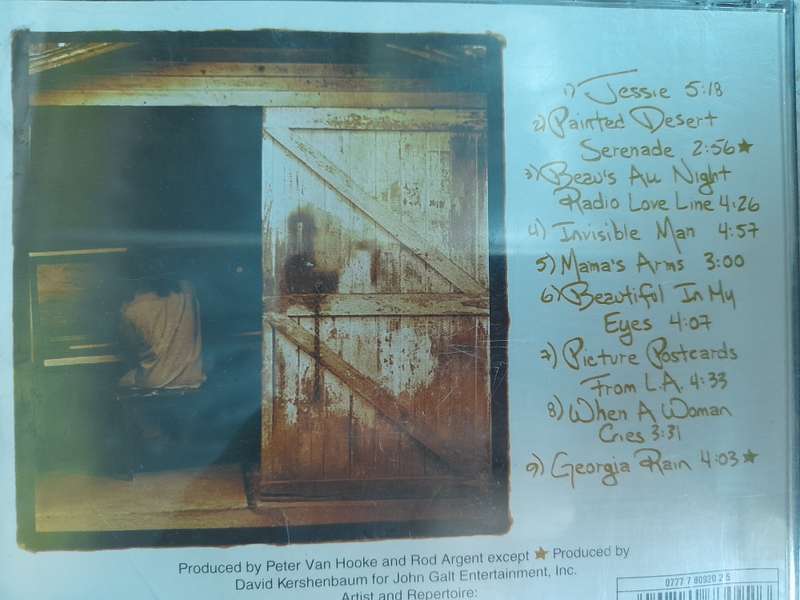 1) Jessie 5:18
2) Painted Desert
Serenade 2:56★
3) Beau's All Night
Radio Love Line 4:26
4) Invisible Man 4:57
5) Mama's Arms 3:00
6) Beautiful In My
Eyes 4:07
7) Picture Postcards
From L.A. 4:33
8) When A Woman
Cries 3:31
9) Georgia Rain 4:03★
Produced by Peter Van Hooke and Rod Argent except ★ Produced by
David Kershenbaum for John Galt Entertainment, Inc.
Artist and Repertoire:
0777 7 80920 2 5